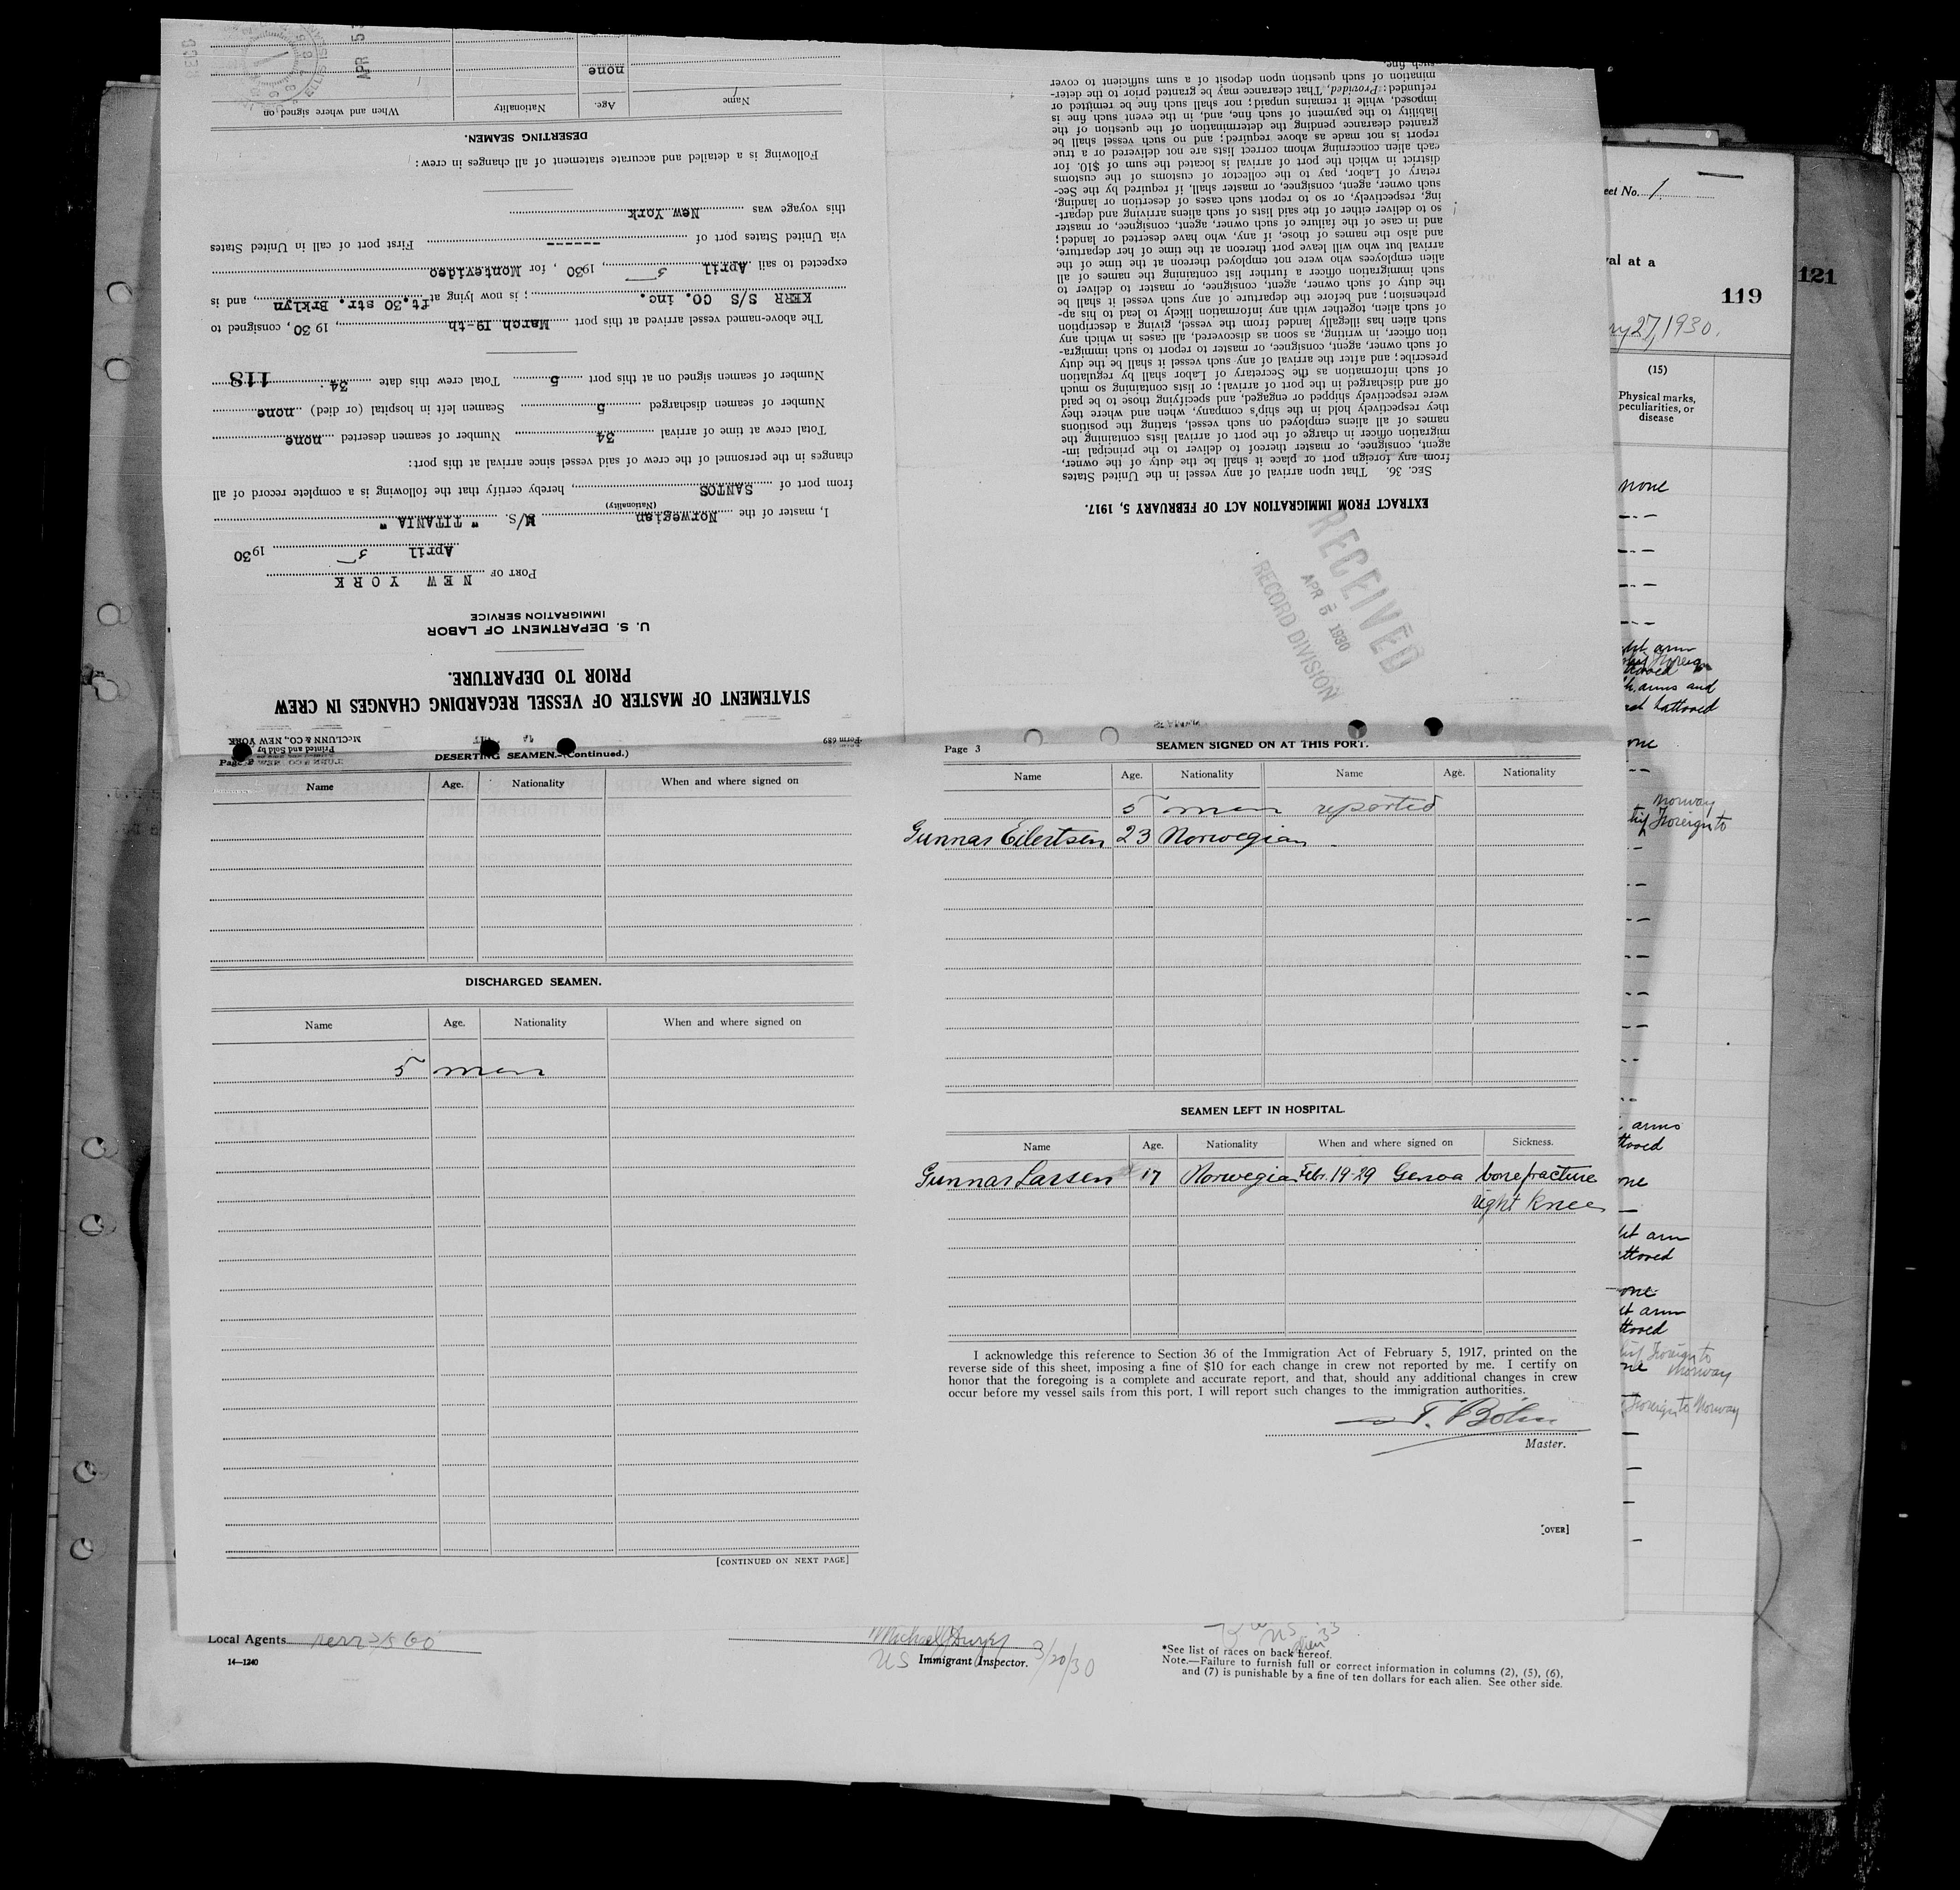 Form 689
Printed and Sold by
McCLUNN & CO., NEW YORK
STATEMENT OF MASTER OF VESSEL REGARDING CHANGES IN CREW
PRIOR TO DEPARTURE.
U. S. DEPARTMENT OF LABOR
IMMIGRATION SERVICE
PORT OF NEW YORK
April 5 1930
I, master of the Norwegian M/S. " TITANIA "
(Nationality)
from port of SANTOS, hereby certify that the following is a complete record of all
changes in the personnel of the crew of said vessel since arrival at this port:
Total crew at time of arrival 34 Number of seamen deserted none
Number of seamen discharged 5 Seamen left in hospital (or died) none
Number of seamen signed on at this port 5 Total crew this date 34. 118
The above-named vessel arrived at this port March 19-th, 1930, consigned to
KERR S/S CO. inc.; is now lying at ft.30 str. Brklyn, and is
expected to sail April 5, 1930, for Montevideo
via United States port of ------ First port of call in United States
this voyage was New York
Following is a detailed and accurate statement of all changes in crew:
DESERTING SEAMEN.
Name Age. Nationality When and where signed on
none
APR 5
EXTRACT FROM IMMIGRATION ACT OF FEBRUARY 5, 1917.
SEC. 36. That upon arrival of any vessel in the United States
from any foreign port or place it shall be the duty of the owner,
agent, consignee, or master thereof to deliver to the principal im-
migration officer in charge of the port of arrival lists containing the
names of all aliens employed on such vessel, stating the positions
they respectively hold in the ship's company, when and where they
were respectively shipped or engaged, and specifying those to be paid
off and discharged in the port of arrival; or lists containing so much
of such information as the Secretary of Labor shall by regulation
prescribe; and after the arrival of any such vessel it shall be the duty
of such owner, agent, consignee, or master to report to such immigra-
tion officer, in writing, as soon as discovered, all cases in which any
such alien has illegally landed from the vessel, giving a description
of such alien, together with any information likely to lead to his ap-
prehension; and before the departure of any such vessel it shall be
the duty of such owner, agent, consignee, or master to deliver to
such immigration officer a further list containing the names of all
alien employees who were not employed thereon at the time of the
arrival but who will leave port thereon at the time of her departure,
and also the names of those, if any, who have deserted or landed;
and in case of the failure of such owner, agent, consignee, or master
so to deliver either of the said lists of such aliens arriving and depart-
ing, respectively, or so to report such cases of desertion or landing,
such owner, agent, consignee, or master shall, if required by the Sec-
retary of Labor, pay to the collector of customs of the customs
district in which the port of arrival is located the sum of $10. for
each alien concerning whom correct lists are not delivered or a true
report is not made as above required; and no such vessel shall be
granted clearance pending the determination of the question of the
liability to the payment of such fine, and, in the event such fine is
imposed, while it remains unpaid; nor shall such fine be remitted or
refunded: Provided, That clearance may be granted prior to the deter-
mination of such question upon deposit of a sum sufficient to cover
such fine.
RECEIVED
APR 5 1930
RECORD DIVISION
Page 2
DESERTING SEAMEN.—(Continued.)
Name Age. Nationality When and where signed on
DISCHARGED SEAMEN.
Name Age. Nationality When and where signed on
5 men
[CONTINUED ON NEXT PAGE]
Page 3
SEAMEN SIGNED ON AT THIS PORT.
Name Age. Nationality Name Age. Nationality
5 men reported
Gunnar Eilertsen 23 Norwegian
SEAMEN LEFT IN HOSPITAL.
Name Age. Nationality When and where signed on Sickness.
Gunnar Larsen 17 Norwegian Febr. 19-29 Genoa bonefracture
right knee
I acknowledge this reference to Section 36 of the Immigration Act of February 5, 1917, printed on the
reverse side of this sheet, imposing a fine of $10 for each change in crew not reported by me. I certify on
honor that the foregoing is a complete and accurate report, and that, should any additional changes in crew
occur before my vessel sails from this port, I will report such changes to the immigration authorities.
Master.
[OVER]
eet No. 1
val at a
119
121
ry 27, 1930.
(15)
Physical marks,
peculiarities, or
disease
none
arm
arms and
tattooed
Norway
Foreign to
arms
arm
arm
Foreign to
Norway
Foreign to Norway
Local Agents Kerr S/S Co
14—1240
US Immigrant Inspector. 3/20/30
US 33
alien
*See list of races on back hereof.
Note.—Failure to furnish full or correct information in columns (2), (5), (6),
and (7) is punishable by a fine of ten dollars for each alien. See other side.